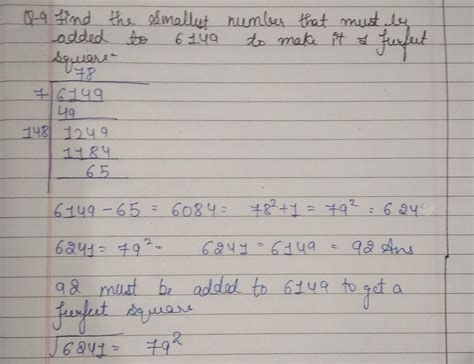 Q-9 Find the smallest number that must be
added to 6149 to make it a perfect
square-
78
7 6149
49
148 1249
1184
65
6149 - 65 = 6084 = 78²+1 = 79² = 624
6241 = 79² - 6241 - 6149 = 92 Ans
92 must be added to 6149 to get a
perfect square
√6241 = 79²